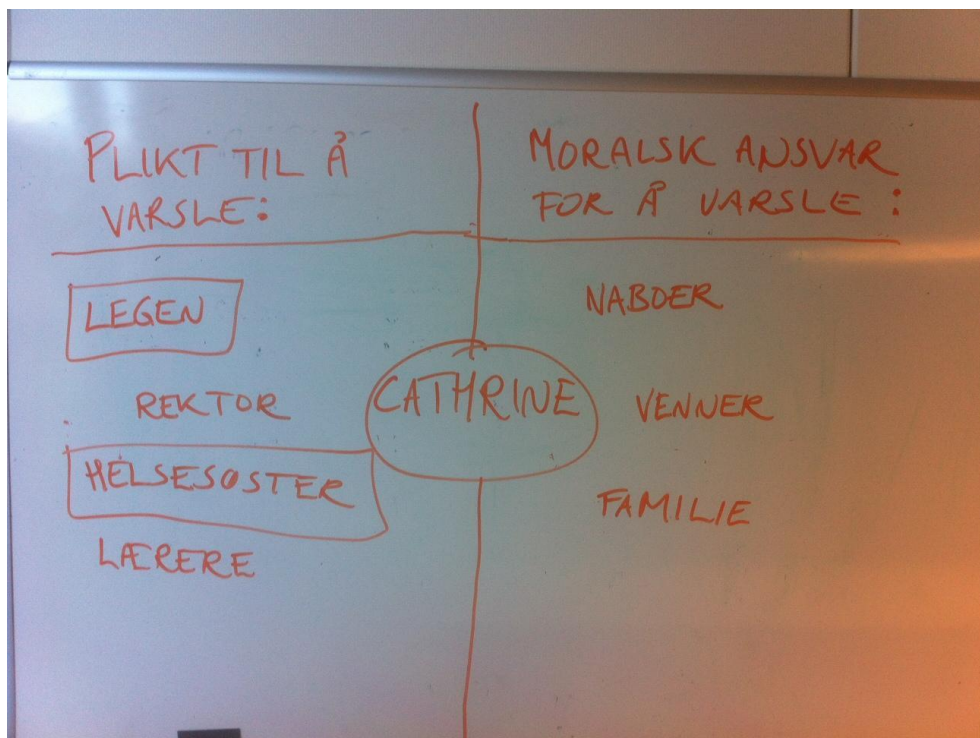 PLIKT TIL Å
VARSLE:
LEGEN
REKTOR
HELSESØSTER
LÆRERE
CATHRINE
MORALSK ANSVAR
FOR Å VARSLE :
NABOER
VENNER
FAMILIE